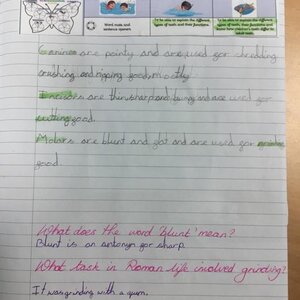 Word mats and sentence openers.
To be able to explain the different types of teeth and their functions.
To be able to explain the different types of teeth and their functions and
Canines are pointy and are used for shredding
crushing and ripping food mostly.
Incisors are thin, sharp and and are used for
cutting food.
Molars are blunt and flat and are used for
food.
What does the word 'blunt' mean?
Blunt is an antonym for sharp.
What task in Roman life involved grinding?
It was grinding with a quern.